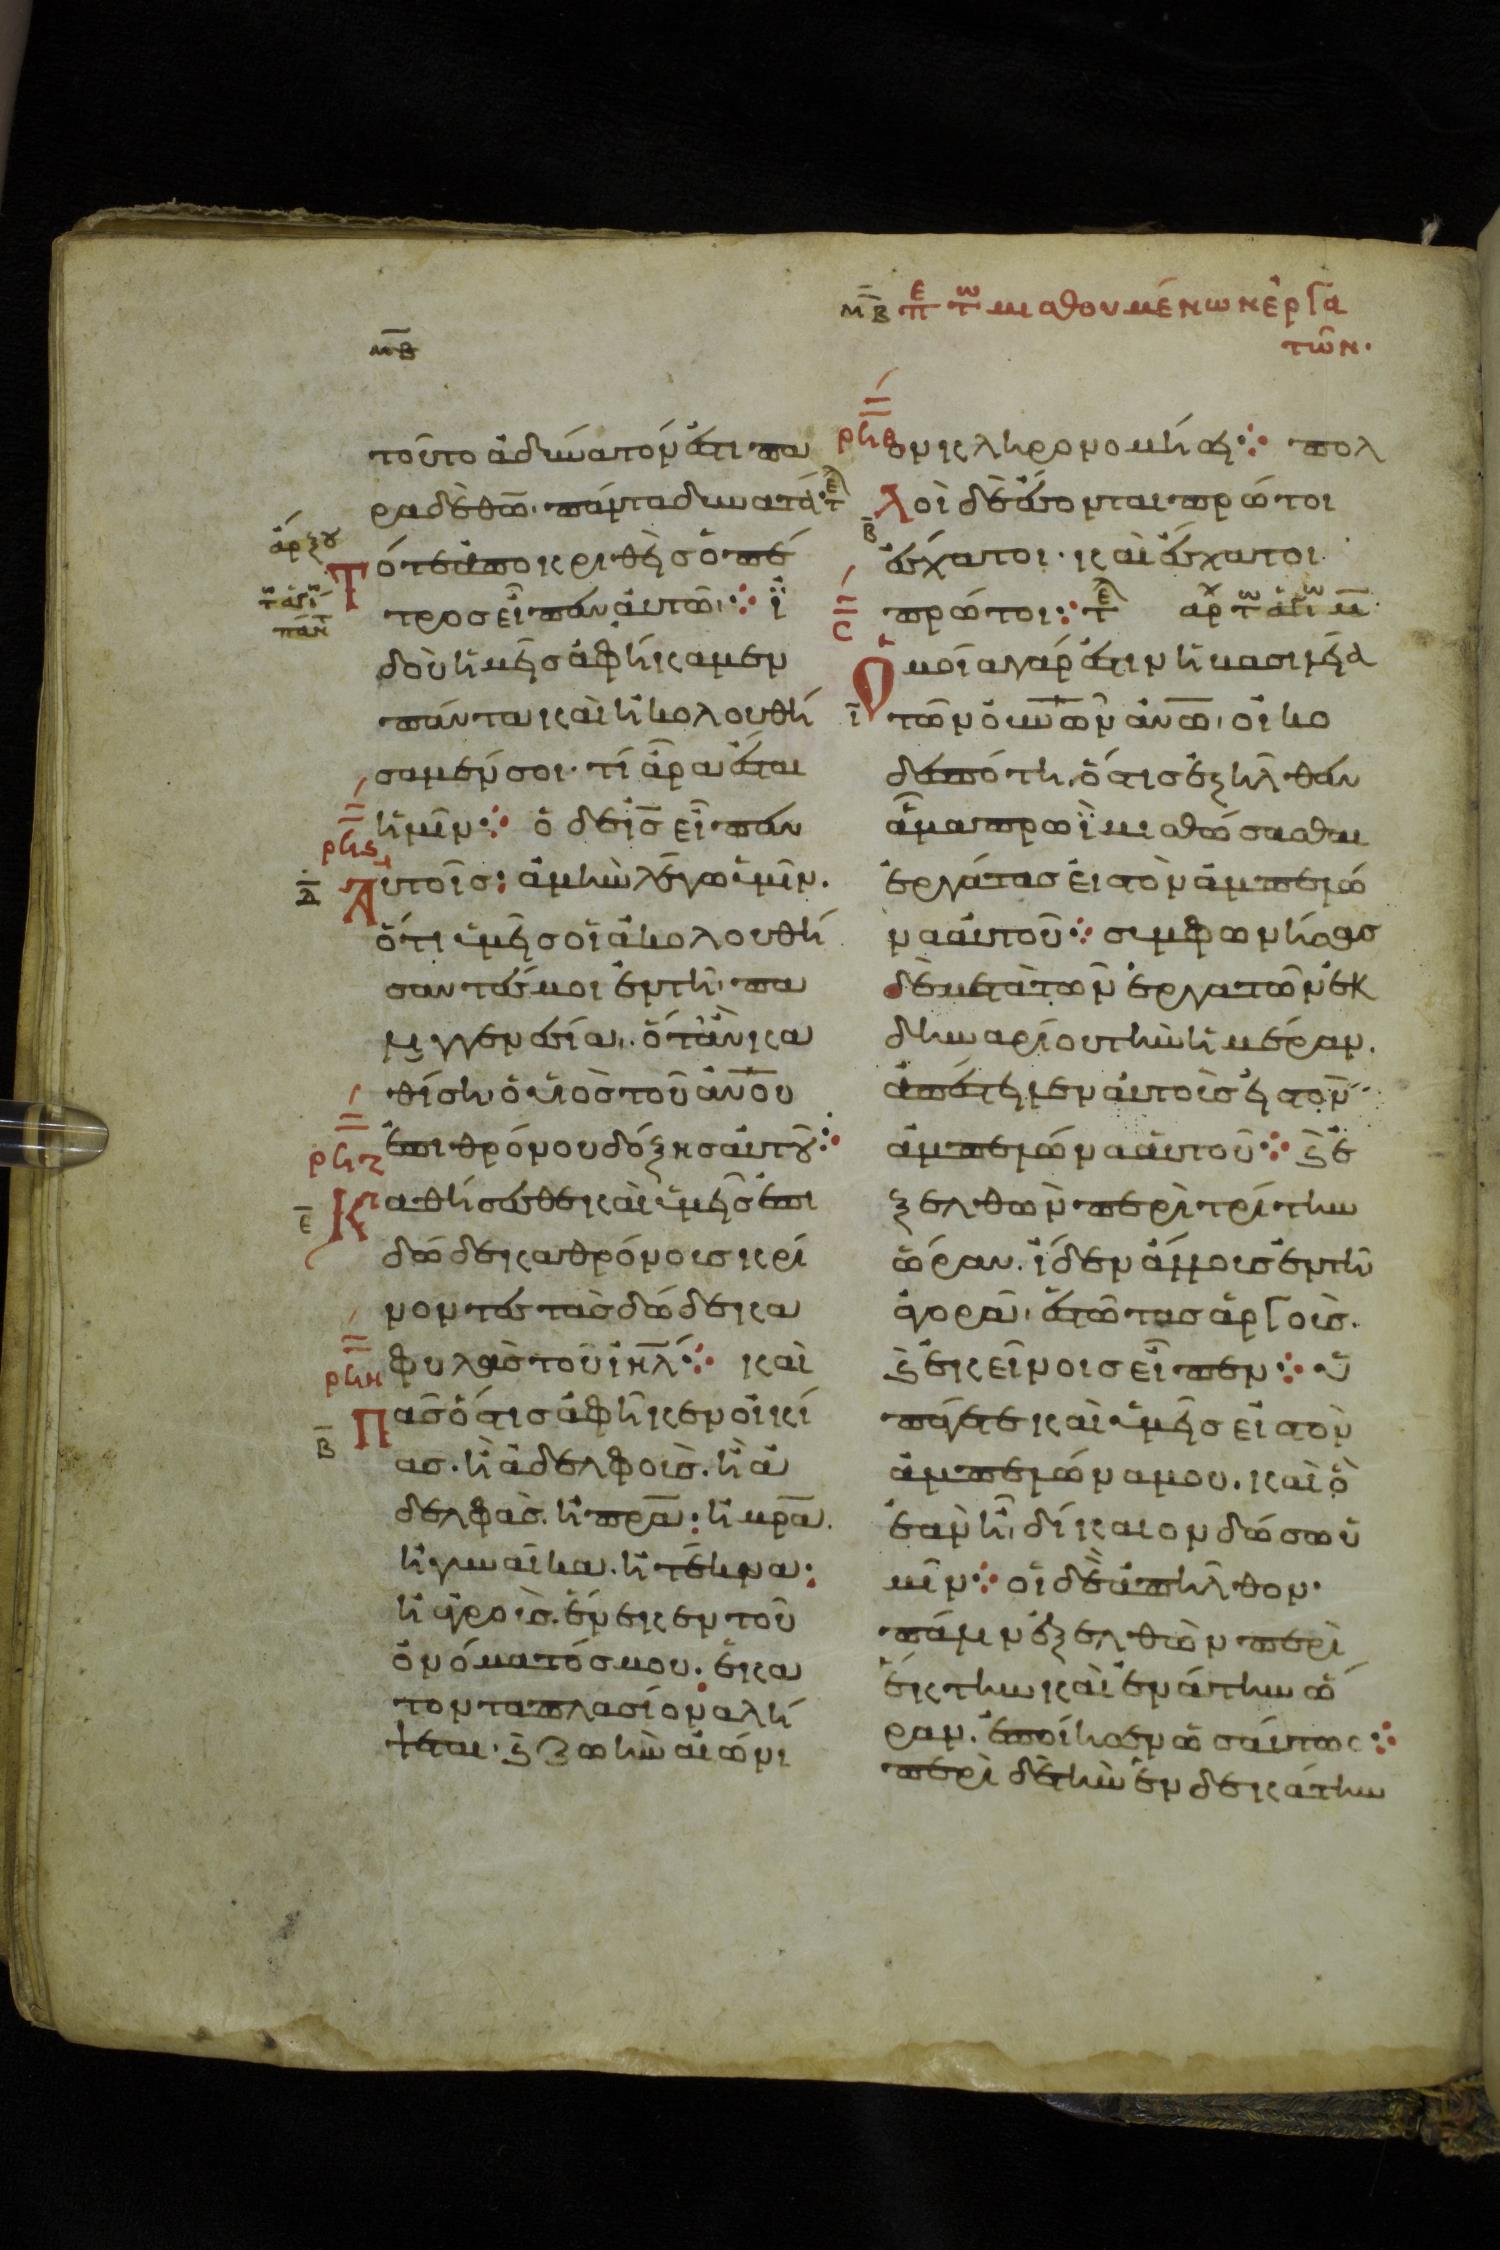 μβ περὶ τῶν μισθουμένων ἐργα
τῶν.
μβ
τοῦτο ἀδύνατόν ἐστι· πα
ρὰ δὲ θω̅ πάντα δυνατά· τε
ἀρξου
Τότε ἀποκριθεὶς ὁ πέ
τρος εἶπεν αὐτῶ· ἰ
δοὺ ἡμεῖς ἀφήκαμεν
πάντα καὶ ἠκολουθή
σαμέν σοι· τί ἄρα ἔσται
ἡμῖν· ὁ δὲ ις̅ εἶπεν
Αὐτοῖς· ἀμὴν λέγω ὑμῖν.
ὅτι ὑμεῖς οἱ ἀκολουθή
σαντές μοι ἐν τῆ πα
λιγγενεσία. ὅταν κα
θίση ὁ υἱὸς τοῦ ἀνου
ἐπὶ θρόνου δόξης αὐτοῦ·
Καθήσεσθε καὶ ὑμεῖς ἐπὶ
δώδεκα θρόνους κρί
νοντες τὰς δώδεκα
φυλὰς τοῦ ἰηλ· καὶ
Πᾶς ὅστις ἀφῆκεν οἰκί
ας. ἢ ἀδελφοὺς. ἢ ἀ
δελφὰς. ἢ πρα̅. ἢ μρα̅.
ἢ γυναῖκα. ἢ τέκνα.
ἢ ἀγροὺς. ἕνεκεν τοῦ
ὀνόματός μου. ἑκα
τονταπλασίονα λή
ψεται. καὶ ζωὴν αἰώνι
ρηε
ρης
ρηζ
ρηη
Δ
Ε
Β
ον κληρονομήσει· πολ
λοὶ δὲ ἔσονται πρῶτοι
ἔσχατοι· καὶ ἔσχατοι
πρῶτοι· τε
Ὁμοία γάρ ἐστιν ἡ βασιλεία
τῶν οὐνῶν ἀνω̅ οἰκο
δεσπότη, ὅστις ἐξῆλθεν
ἅμα πρωῒ μισθώσασθαι
ἐργάτας εἰς τὸν ἀμπελῶ
να αὐτοῦ· συμφωνήσας
δὲ μετὰ τῶν ἐργατῶν ἐκ
δηναρίου τὴν ἡμέραν.
ἀπέστειλεν αὐτοὺς εἰς τὸν
ἀμπελῶνα αὐτοῦ· καὶ ἐ
ξελθὼν περὶ τρίτην
ὥραν. ἴδεν ἄλλους ἐν τῆ
ἀγορᾶ, ἑστῶτας ἀργοὺς.
καὶ ἐκείνοις εἶπεν· ὑ
πάγετε καὶ ὑμεῖς εἰς τὸν
ἀμπελῶνα μου. καὶ ὃ
ἐὰν ἦ, δίκαιον δώσω ὑ
μῖν· οἱ δὲ ἀπῆλθον·
πάλιν ἐξελθὼν περὶ
ἕκτην καὶ ἐνάτην ὥ
ραν. ἐποίησεν ὡσαύτως·
περὶ δὲ τὴν ἑνδεκάτην